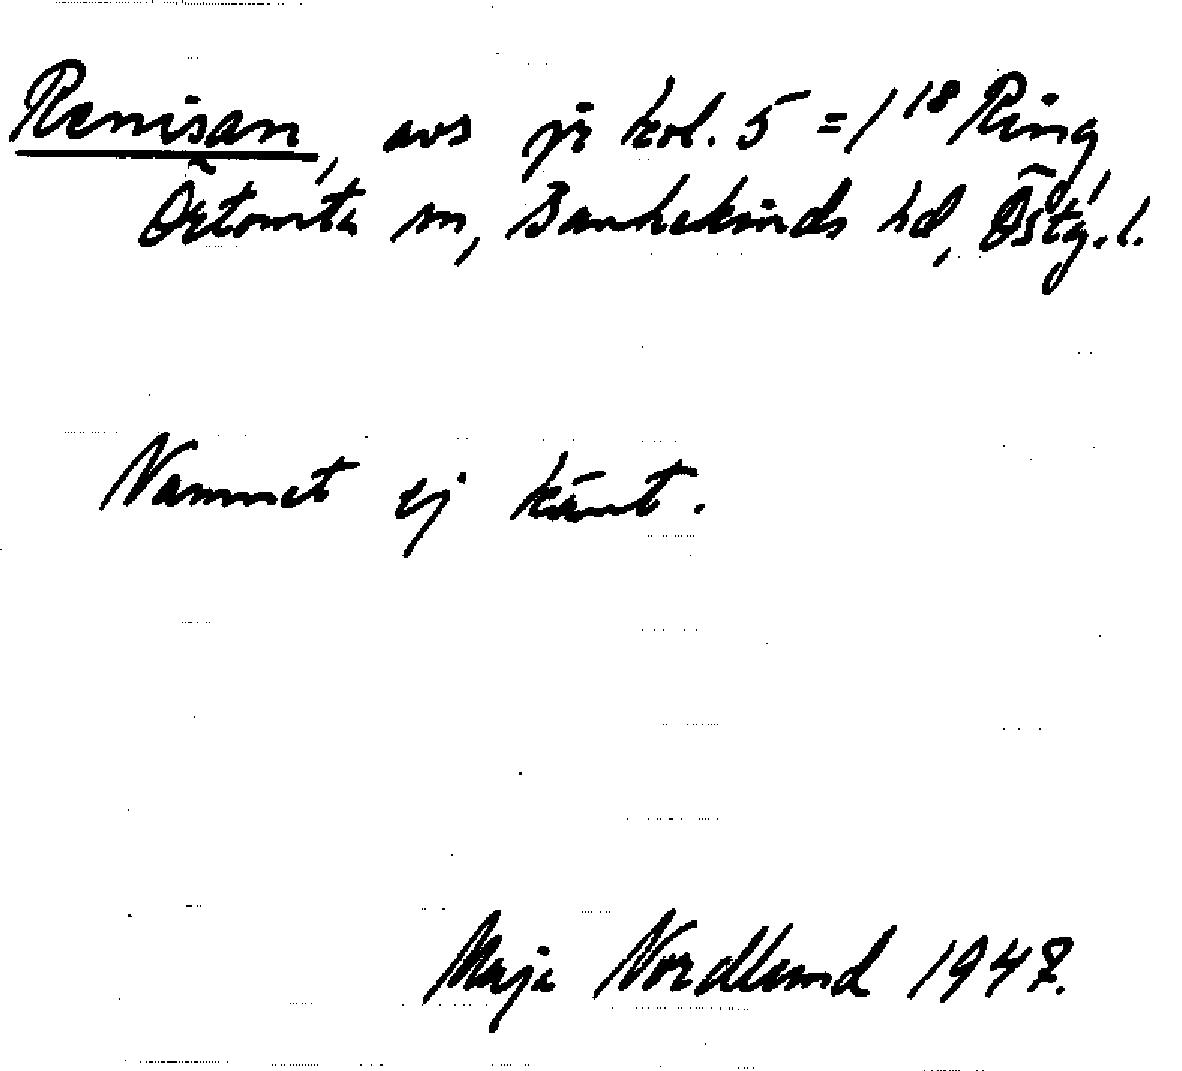 Renisan, avs på kol. 5 = 1¹⁸ Ring
Örtomta sn, Bankekinds hd, Östg. l.
Namnet ej känt.
Maja Nordlund 1947.